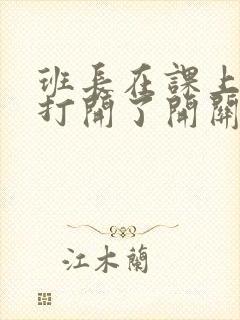 班長在課上
打開了開關
江木蘭